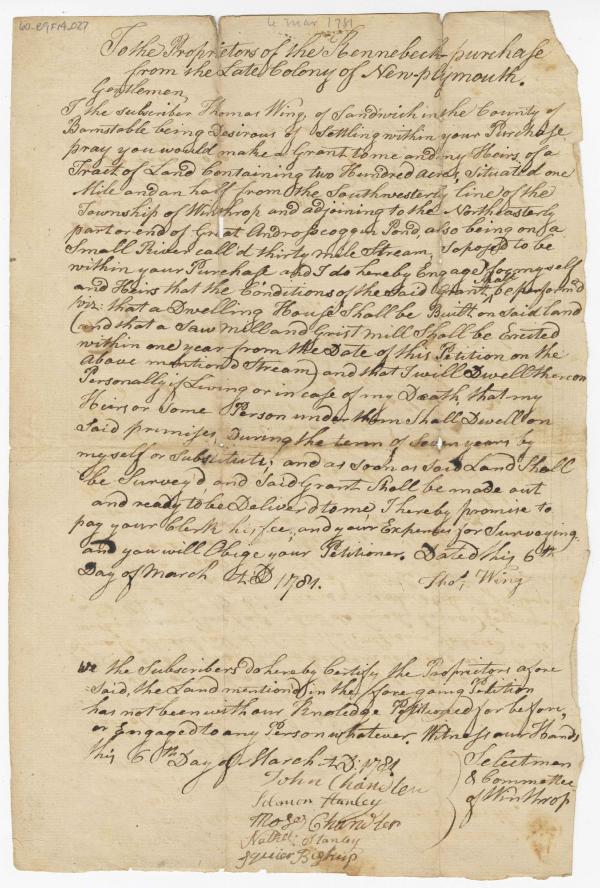 60.C9F14.D27
6 Mar 1781
To the Proprietors of the Kennebeck-purchase
from the Late Colony of New-plymouth.
Gentlemen
I the subscriber Thomas Wing, of Sandwich in the County of
Barnstable being Desirous of Settling within your Purchase
pray you would make a Grant to me and my Heirs, of a
Tract of Land Containing two Hundred acres, Situated one
Mile and an half from the Southwesterly line of the
Township of Winthrop and adjoining to the Northeasterly
part or end of Great Androscoggin Pond, also being on a
Small River call'd thirty mile Stream, Soposed to be
within your Purchase and I do hereby Engage for my self
and Heirs that the Conditions of the Said grant Shall be perform'd
viz: that a Dwelling House Shall be Built on Said land
(and that a Saw mill and Grist mill Shall be Erected
within one year from the Date of this Petition on the
above mention'd Stream) and that I will Dwell thereon
Personally if Living or in case of my Death, that my
Heirs or Some Person under them Shall Dwell on
Said premises, During the term of Seven years by
my self or Substitute; and as soon as Said Land Shall
be Survey'd and Said Grant Shall be made out
and ready to be Deliver'd to me, I hereby promise to
pay your Clerk his fee, and your Expences for Surveying.
and you will Obige your Petitioner. Dated this 6th
Day of March AD 1781.
Thos, Wing
We the Subscribers do hereby Certify the Proprietors afore
Said, the Land mentiond in the fore going Petition
has not been with our Knoledge Petitioned for before,
or Engaged to any Person whatever. Witness our Hands
this 6th Day of March AD: 1781
John Chandler
Solomon Stanley
Moses Chandler
Nathel: Stanley
Squier Bishup
Selectmen
& Committee
of Winthrop